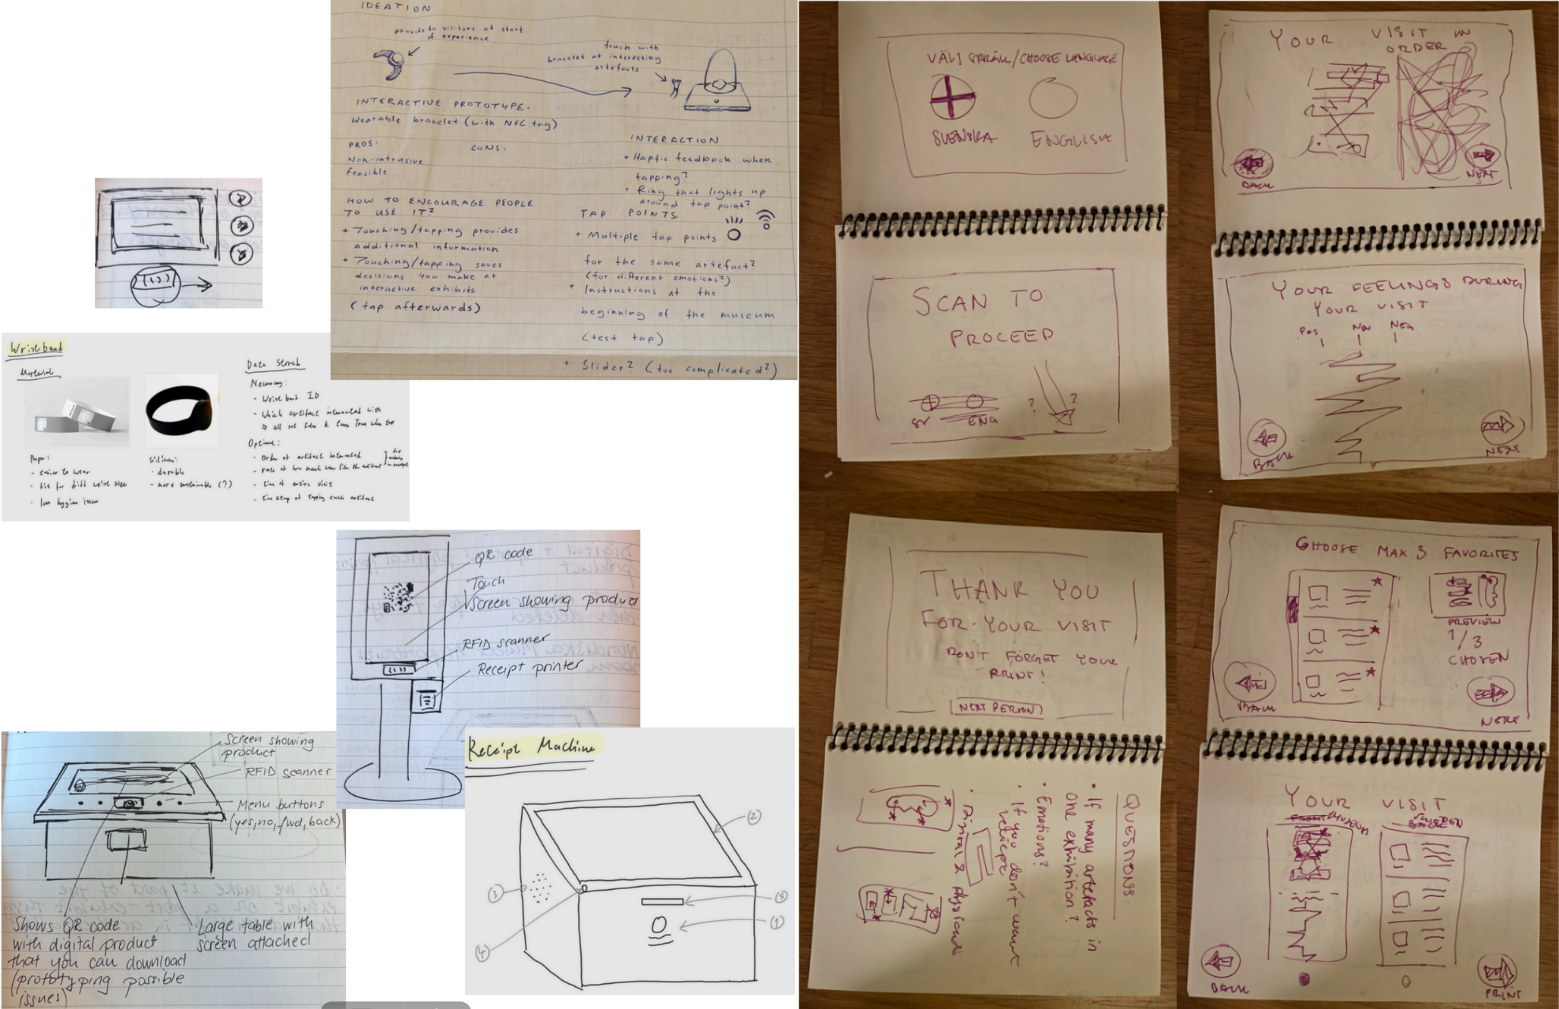 IDEATION
provide to visitors at start
of experience
touch with
bracelet at interesting
artefacts
INTERACTIVE PROTOTYPE:
Wearable bracelet (with NFC tag)
PROS:
CONS:
Non-intrusive
Feasible
HOW TO ENCOURAGE PEOPLE
TO USE IT?
+ Touching/tapping provides
additional information
+ Touching/tapping saves
decisions you make at
interactive exhibits
(tap afterwards)
INTERACTION
+ Haptic feedback when
tapping?
+ Ring that lights up
around tap point?
TAP POINTS
+ Multiple tap points
for the same artefact?
(for different emotions?)
+ Instructions at the
beginning of the museum
(test tap)
+ Slider? (too complicated?)
Wristband
Material
Paper:
- easier to wear
- size for diff wrist size
- less hygiene issue
Silicone:
- durable
- more sustainable (?)
Data stored
Necessary:
- Wristband ID
- which artifact interacted with
Optional:
- Order of artifact interacted
- rate of how much user like the artifact
- time of entire visit
- timestamp of tapping each artifact
QR code
Touch
Screen showing product
RFID scanner
Receipt printer
Screen showing
product
RFID scanner
Menu buttons
(yes, no, fwd, back)
Shows QR code
with digital product
that you can download
(prototyping possible
issues)
Large table with
screen attached
Receipt Machine
2
3
5
1
4
VÄLJ SPRÅK/CHOOSE LANGUAGE
SVENSKA
ENGLISH
SCAN TO
PROCEED
SV
ENG
? ?
YOUR VISIT IN
ORDER
BACK
NEXT
YOUR FEELINGS DURING
YOUR VISIT
POS
NEU
NEG
BACK
NEXT
THANK YOU
FOR YOUR VISIT
DON'T FORGET YOUR
PRINT!
NEXT PERSON
QUESTIONS:
• If many artefacts in
one exhibition?
• Emotions?
• If you don't want
receipt
• Digital & physical
CHOOSE MAX 3 FAVORITES
PREVIEW
1/3
CHOSEN
BACK
NEXT
YOUR VISIT
BACK
PRINT